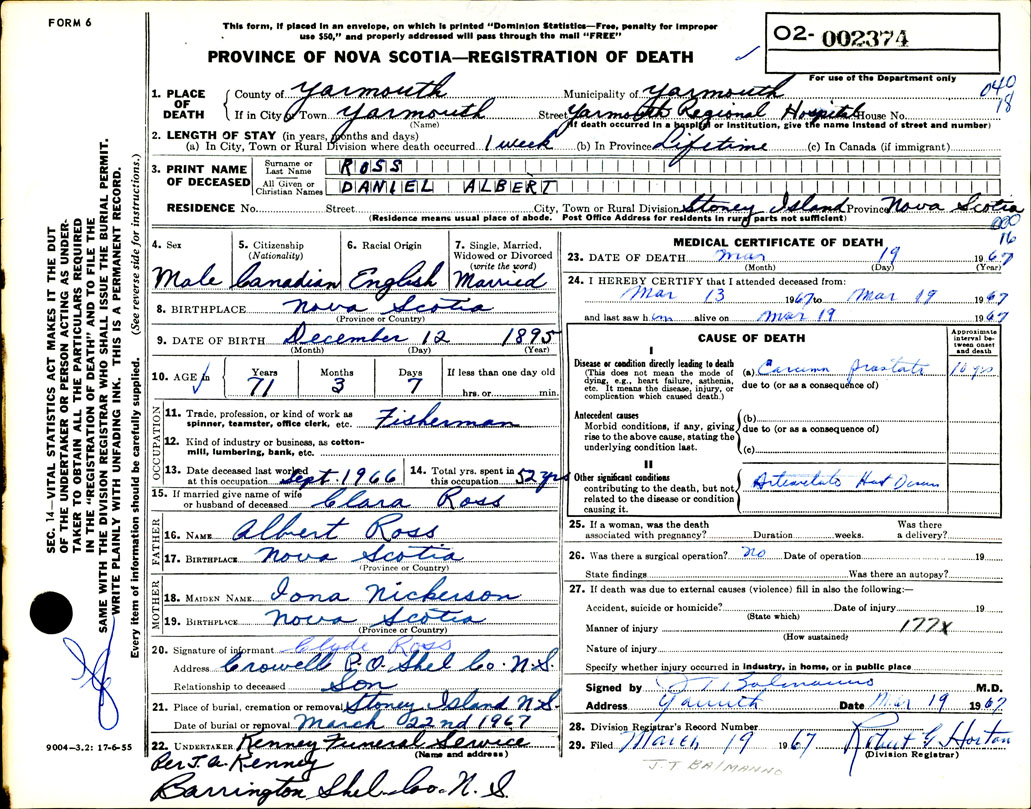 FORM 6
This form, if placed in an envelope, on which is printed "Dominion Statistics—Free, penalty for improper
use $50," and properly addressed will pass through the mail "FREE"
PROVINCE OF NOVA SCOTIA—REGISTRATION OF DEATH
02- 002374
For use of the Department only
040
18
1. PLACE OF DEATH
County of Yarmouth Municipality of Yarmouth
If in City or Town Yarmouth Street Yarmouth Regional Hospital House No.
(Name) (If death occurred in a hospital or institution, give the name instead of street and number)
2. LENGTH OF STAY (in years, months and days)
(a) In City, Town or Rural Division where death occurred 1 week (b) In Province Lifetime (c) In Canada (if immigrant)
3. PRINT NAME OF DECEASED
Surname or Last Name ROSS
All Given or Christian Names DANIEL ALBERT
RESIDENCE No. Street City, Town or Rural Division Stoney Island Province Nova Scotia
(Residence means usual place of abode. Post Office Address for residents in rural parts not sufficient)
000
16
4. Sex 5. Citizenship (Nationality) 6. Racial Origin 7. Single, Married, Widowed or Divorced (write the word)
Male Canadian English Married
8. BIRTHPLACE Nova Scotia
(Province or Country)
9. DATE OF BIRTH December 12 1895
(Month) (Day) (Year)
10. AGE in Years Months Days If less than one day old
71 3 7 hrs. or min.
OCCUPATION
11. Trade, profession, or kind of work as
spinner, teamster, office clerk, etc. Fisherman
12. Kind of industry or business, as cotton-
mill, lumbering, bank, etc.
13. Date deceased last worked at this occupation Sept. 1966 14. Total yrs. spent in this occupation 52 yrs
15. If married give name of wife
or husband of deceased Clara Ross
FATHER
16. NAME Albert Ross
17. BIRTHPLACE Nova Scotia
(Province or Country)
MOTHER
18. MAIDEN NAME Iona Nickerson
19. BIRTHPLACE Nova Scotia
(Province or Country)
20. Signature of informant Clyde Ross
Address Crowell P.O. Shel Co. N.S.
Relationship to deceased Son
21. Place of burial, cremation or removal Stoney Island N.S.
Date of burial or removal March 22nd 1967
22. UNDERTAKER Kenney Funeral Service
(Name and address)
Per J. A. Kenney
Barrington Shel. Co. N.S.
MEDICAL CERTIFICATE OF DEATH
23. DATE OF DEATH Mar 19 1967
(Month) (Day) (Year)
24. I HEREBY CERTIFY that I attended deceased from:
Mar 13 1967 to Mar 19 1967
and last saw him alive on Mar 19 1967
CAUSE OF DEATH
Approximate interval between onset and death
I
Disease or condition directly leading to death
(This does not mean the mode of
dying, e.g., heart failure, asthenia,
etc. It means the disease, injury, or
complication which caused death.)
(a) Carcinn prostate 10 yrs
due to (or as a consequence of)
Antecedent causes
Morbid conditions, if any, giving
rise to the above cause, stating the
underlying condition last.
(b)
due to (or as a consequence of)
(c)
II
Other significant conditions
contributing to the death, but not
related to the disease or condition
causing it.
25. If a woman, was the death
associated with pregnancy? Duration weeks. Was there a delivery?
26. Was there a surgical operation? No Date of operation 19
State findings Was there an autopsy?
27. If death was due to external causes (violence) fill in also the following:—
Accident, suicide or homicide? Date of injury 19
(State which)
Manner of injury 177X
(How sustained)
Nature of injury
Specify whether injury occurred in industry, in home, or in public place
Signed by J T Balmanno M.D.
Address Yarmouth Date Mar 19 1967
28. Division Registrar's Record Number
29. Filed March 19 1967 Robert G Horton
(Division Registrar)
J.T BALMANNO
SEC. 14—VITAL STATISTICS ACT MAKES IT THE DUT
OF THE UNDERTAKER OR PERSON ACTING AS UNDER-
TAKER TO OBTAIN ALL THE PARTICULARS REQUIRED
IN THE "REGISTRATION OF DEATH" AND TO FILE THE
SAME WITH THE DIVISION REGISTRAR WHO SHALL ISSUE THE BURIAL PERMIT.
WRITE PLAINLY WITH UNFADING INK. THIS IS A PERMANENT RECORD.
Every item of information should be carefully supplied. (See reverse side for instructions.)
9004—3.2: 17-6-55